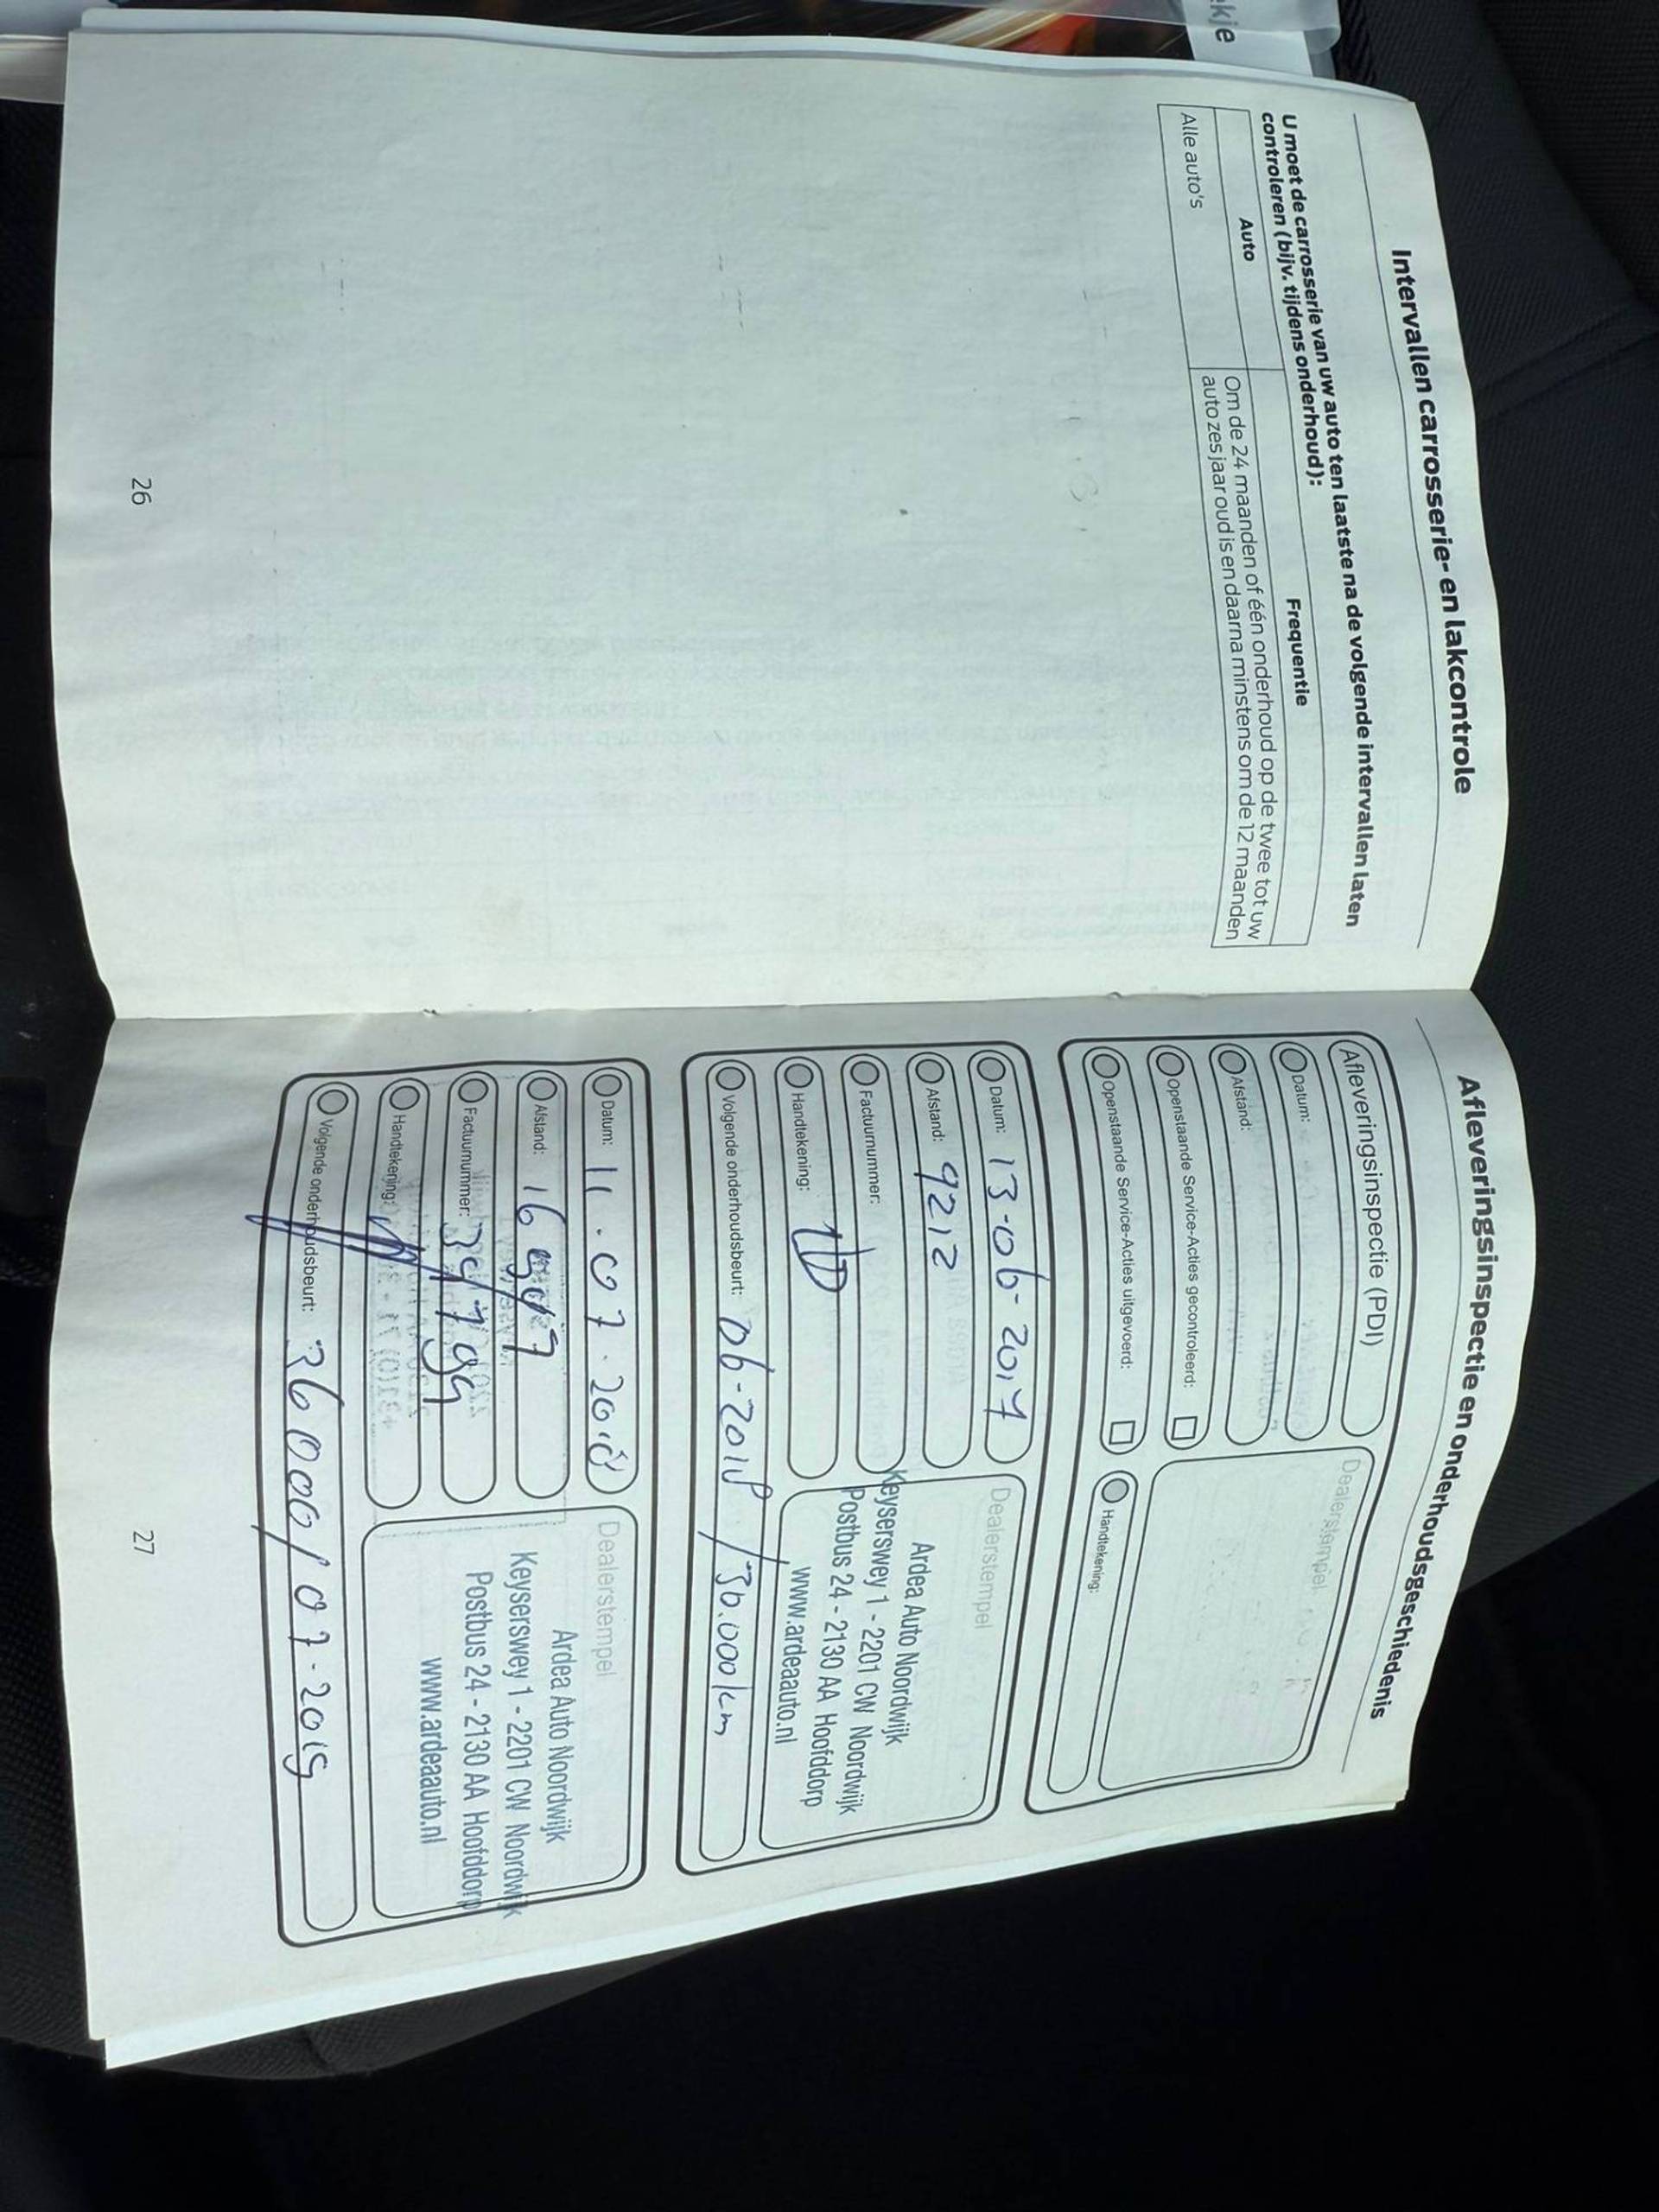 kje
Intervallen carrosserie- en lakcontrole
U moet de carrosserie van uw auto ten laatste na de volgende intervallen laten
controleren (bijv. tijdens onderhoud):
Auto
Frequentie
Alle auto's
Om de 24 maanden of één onderhoud op de twee tot uw
auto zes jaar oud is en daarna minstens om de 12 maanden
26
Afleveringsinspectie en onderhoudsgeschiedenis
Afleveringsinspectie (PDI)
Dealerstempel
Datum:
Afstand:
Openstaande Service-Acties gecontroleerd:
Openstaande Service-Acties uitgevoerd:
Handtekening:
Datum: 13-06-2017
Dealerstempel
Afstand: 9212
Ardea Auto Noordwijk
Factuurnummer:
Keyserswey 1 - 2201 CW Noordwijk
Postbus 24 - 2130 AA Hoofddorp
Handtekening:
www.ardeaauto.nl
Volgende onderhoudsbeurt: 06-2018 / 36.000 km
Datum: 11.07.2018
Dealerstempel
Afstand:
Ardea Auto Noordwijk
Keyserswey 1 - 2201 CW Noordwijk
Factuurnummer:
Postbus 24 - 2130 AA Hoofddorp
Handtekening:
www.ardeaauto.nl
Volgende onderhoudsbeurt: 36000 / 07.2019
27